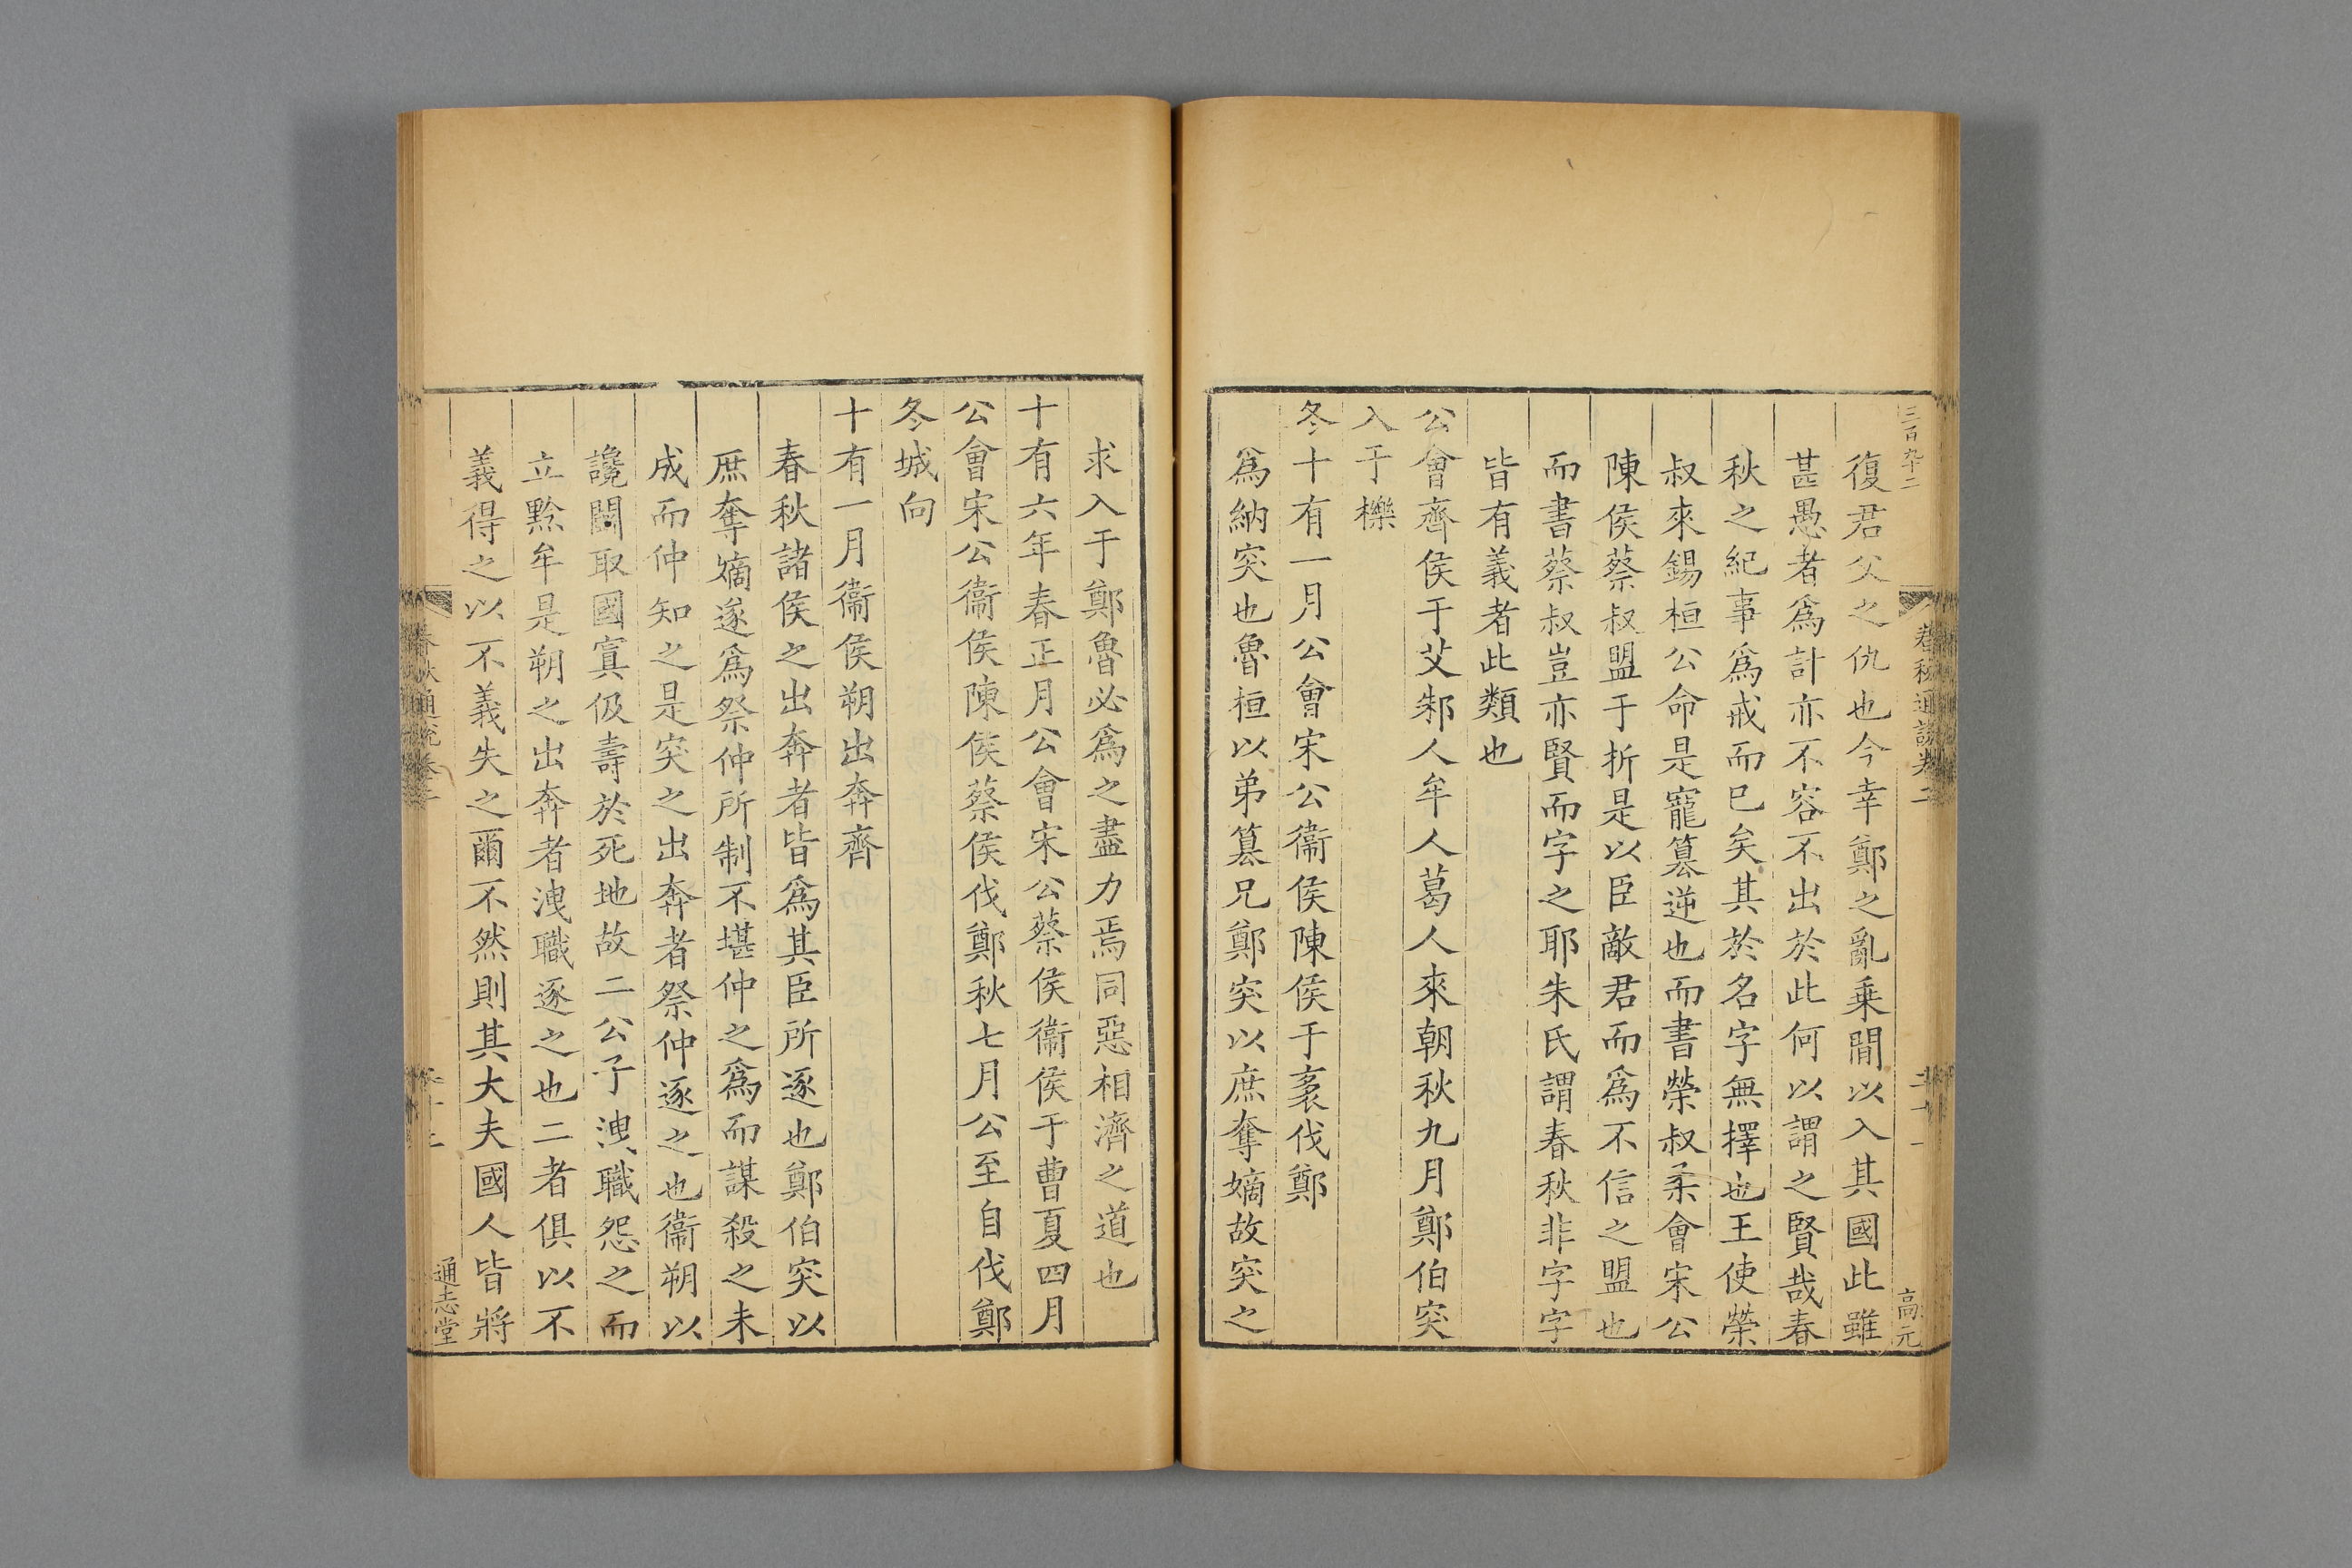 三百九十二
復君父之仇也今幸鄭之亂乗閒以入其國此雖
甚愚者爲計亦不容不出於此何以謂之賢哉春
秋之紀事爲戒而已矣其於名字無擇也王使榮
叔來錫桓公命是寵篡逆也而書榮叔柔會宋公
陳侯蔡叔盟于折是以臣敵君而爲不信之盟也
而書蔡叔豈亦賢而字之耶朱氏謂春秋非字字
皆有義者此類也
公會齊侯于艾邾人牟人葛人來朝秋九月鄭伯突
入于櫟
冬十有一月公會宋公衞侯陳侯于袤伐鄭
爲納突也魯桓以弟篡兄鄭突以庶奪嫡故突之
春秋通說卷二
高元
求入于鄭魯必爲之盡力焉同惡相濟之道也
十有六年春正月公會宋公蔡侯衞侯于曹夏四月
公會宋公衞侯陳侯蔡侯伐鄭秋七月公至自伐鄭
冬城向
十有一月衞侯朔出奔齊
春秋諸侯之出奔者皆爲其臣所逐也鄭伯突以
庶奪嫡遂爲祭仲所制不堪仲之爲而謀殺之未
成而仲知之是突之出奔者祭仲逐之也衞朔以
讒鬭取國寘伋壽於死地故二公子洩職怨之而
立黔牟是朔之出奔者洩職逐之也二者俱以不
義得之以不義失之爾不然則其大夫國人皆將
春秋通說卷二
通志堂